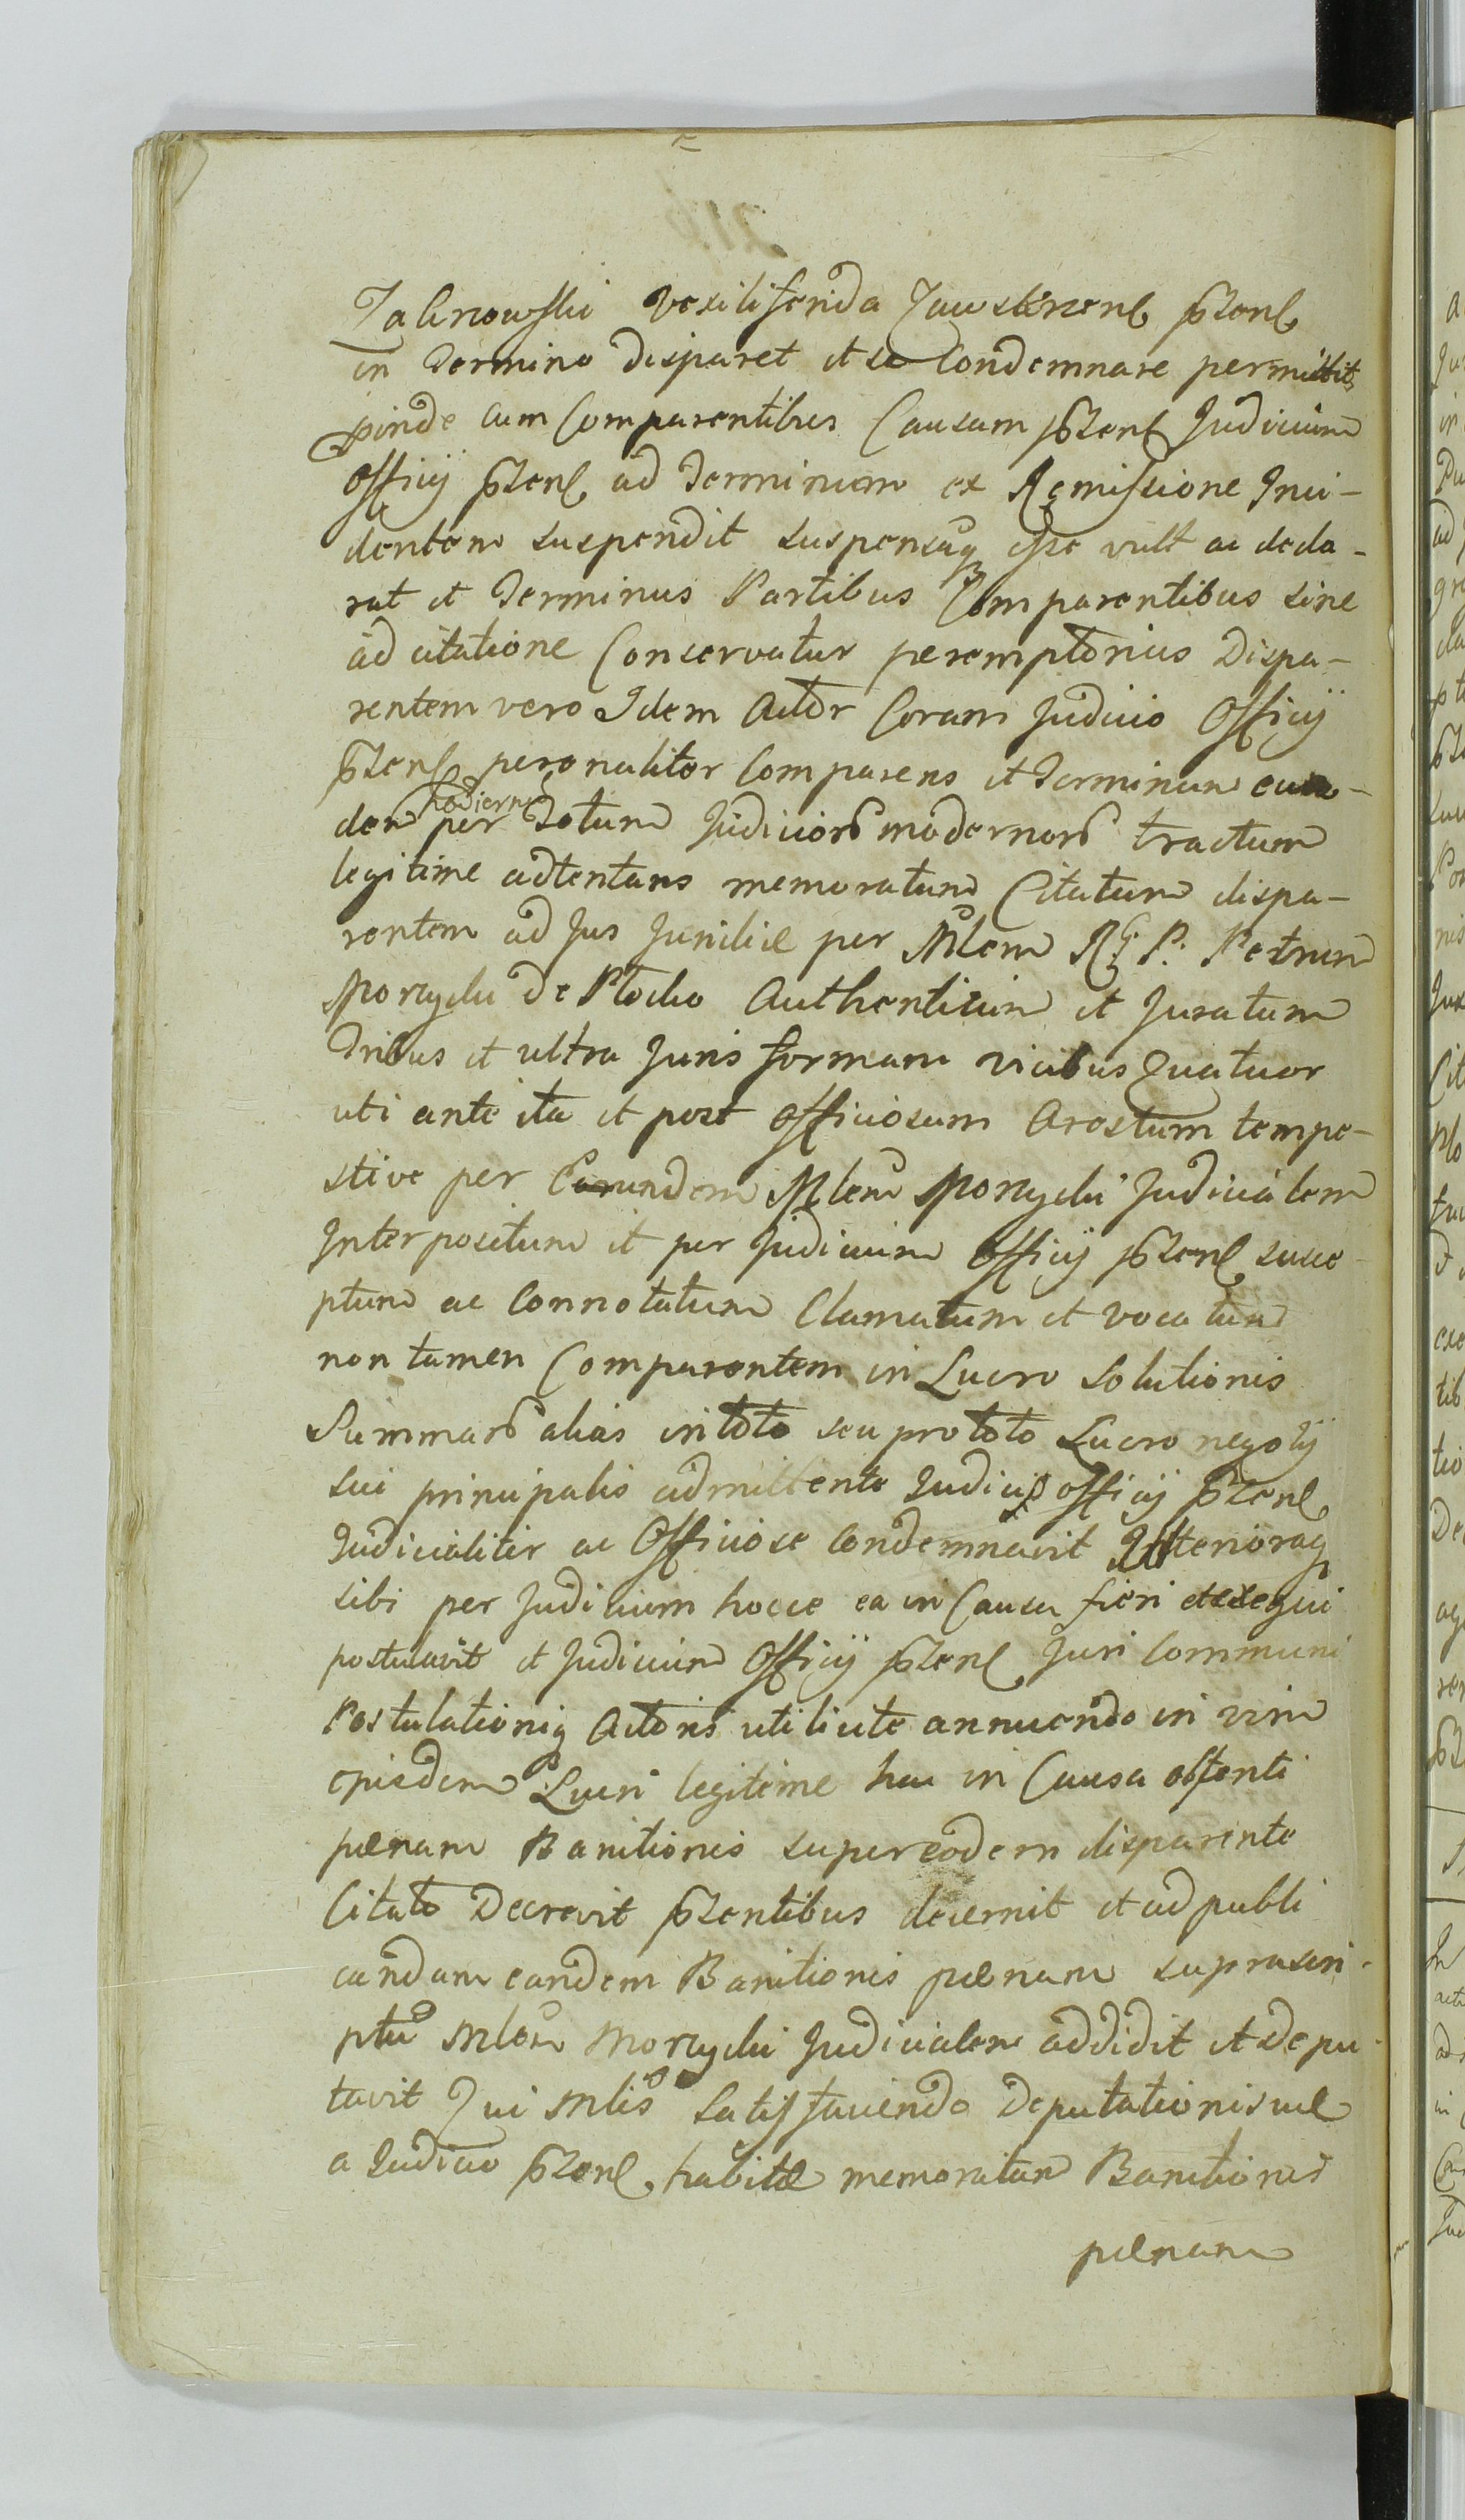 Zalinowski Vexiliferida Zawskrzenſ pſzenſ
in Termino disparet et se Condemnare permittit
proinde cum Comparentibus Causam pſzenſ Judicium
Officij pſzenſ ad Terminum ex Remissione Inci-
dentem suspendit suspensaq esse vult ac decla-
rat et Terminus Partibus Comparentibus sine
ad citatione Conservatur peremptorius Dispa-
rentem vero Idem Actor Coram Judicio Officij
pſzenſ personaliter Comparens et Terminum eun-
dem hodiernu per Totum Judicior modernor tractum
legitime adtentans memoratum Citatum dispa-
rentem ad Jus Juridice per Mlem R: P: Petrum
Moraycki De Plocko Authenticum et Juratum
Tribus et ultra Juris formam vicibus Quatuor
uti ante ita et post Officiosum Arestum tempe-
stive per Eundem Mlem Moraycki Judicialem
Interpositum et per Judicium Officij pſzenſ susce-
ptum ac Connotatum Clamatum et vocatum
non tamen Comparentem in Lucro Solutionis
Summar alias in toto seu pro toto Lucro negotij
sui principalis admittente Judicio officij pſzenſ
Judicialiter ac Officiose Condemnavit Ulterioraq
sibi per Judicium hocce ea in Causa fieri et exequi
postulavit et Judicium Officij pſzenſ Juri Communi
Postulationiq Actoris utilicite annuendo in vim
ejusdem Lucri legitime hac in Causa obtenti
pænam Banitionis super eodem disparente
Citato Decrevit pſzentibus decernit et ad publi
candam eandem Banitionis pænam suprascri-
ptu Mlem Moraycki Judicialem addidit et Depu-
tavit Qui Mlis Satisfaciendo Deputationi suæ
a Judicio pſzenſ habitæ memoratam Banitionis
pænam